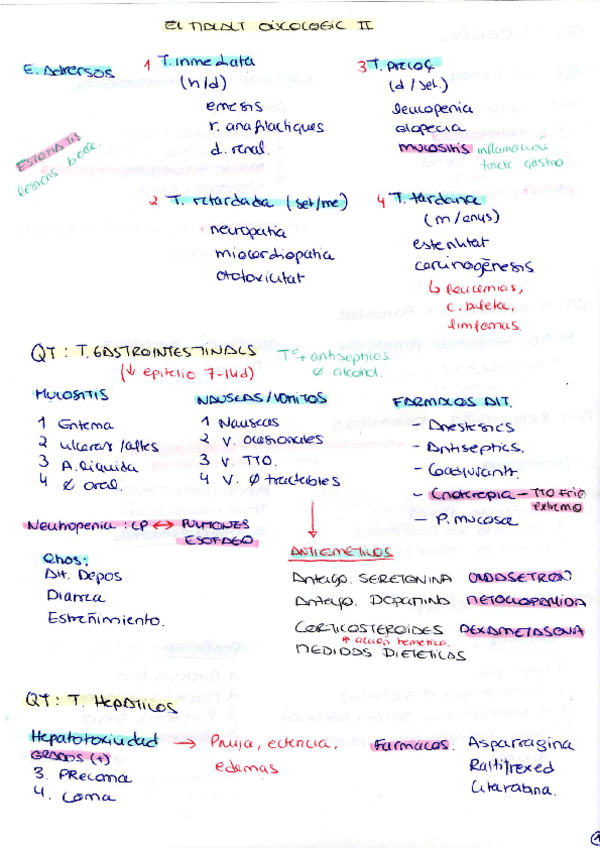 EL MALALT ONCOLOGIC II
E. Adversos
1 T. inmediata
(h/d)
emesis
r. anafilactiques
d. renal.
3 T. precoç
(d/set.)
leucopenia
alopecia
mucositis inflamacion
tracte gastro
ESTOMATITIS
lesions boca
2 T. retardada (set/me)
neuropatia
miocardiopatia
ototoxicitat
4 T. tardana
(m/anys)
esterilitat
carcinogènesis
↳ leucemias,
c. bufeta,
limfomas.
QT: T. GASTROINTESTINALS
(↓ epitelio 7-14d)
Tº + antiseptics
Ø alcohol.
MUCOSITIS
1 Eritema
2 ulceras/aftes
3 A. liquida
4 Ø oral.
NAUSEAS/VOMITOS
1 Nauseas
2 V. ocasionales
3 V. TTO.
4 V. Ø tractables
FARMACOS DIT.
- Anestesics
- Antiseptics.
- Coadjuvants.
- Crioterapia - TTO frio
extremo
- P. mucosa
Neutropenia: CP ↔ PULMONES
ESOFAGO
Altres:
Alt. Depos
Diarrea
Estreñimiento.
ANTIEMETICOS
Antago. SEROTONINA ONDOSETRON
Antago. DOPAMINO METOCLOPAMIDA
CORTICOSTEROIDES DEXAMETASONA
MEDIDAS DIETETICAS
QT: T. Hepáticos
Hepatotoxicidad → Prurija, ictericia,
edemas
GRADOS (+)
3. PRecoma
4. Coma
Farmacos. Asparragina
Raltitrexed
Citarabina.
1